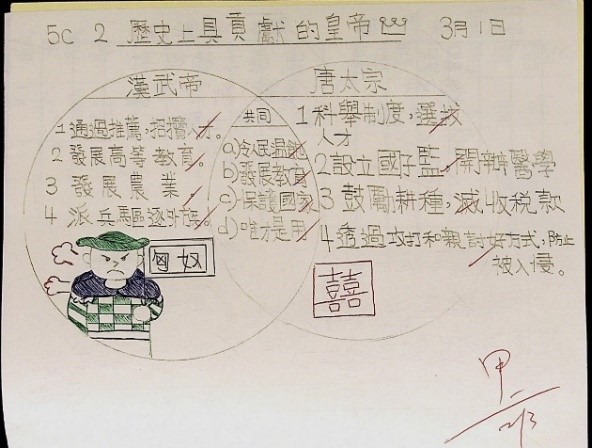 5C 2 歷史上具貢獻的皇帝 3月1日
漢武帝
1 通過推薦,招攬人才。
2 發展高等教育。
3 發展農業。
4 派兵驅逐外族。
匈奴
共同
a)令人民温飽
b)發展教育
c)保護國家
d)唯才是用
唐太宗
1 科舉制度,選拔
人才
2 設立國子監,開辦醫學
3 鼓勵耕種,減收税款
4 透過攻打和親討好方式,防止
被入侵。
囍
甲